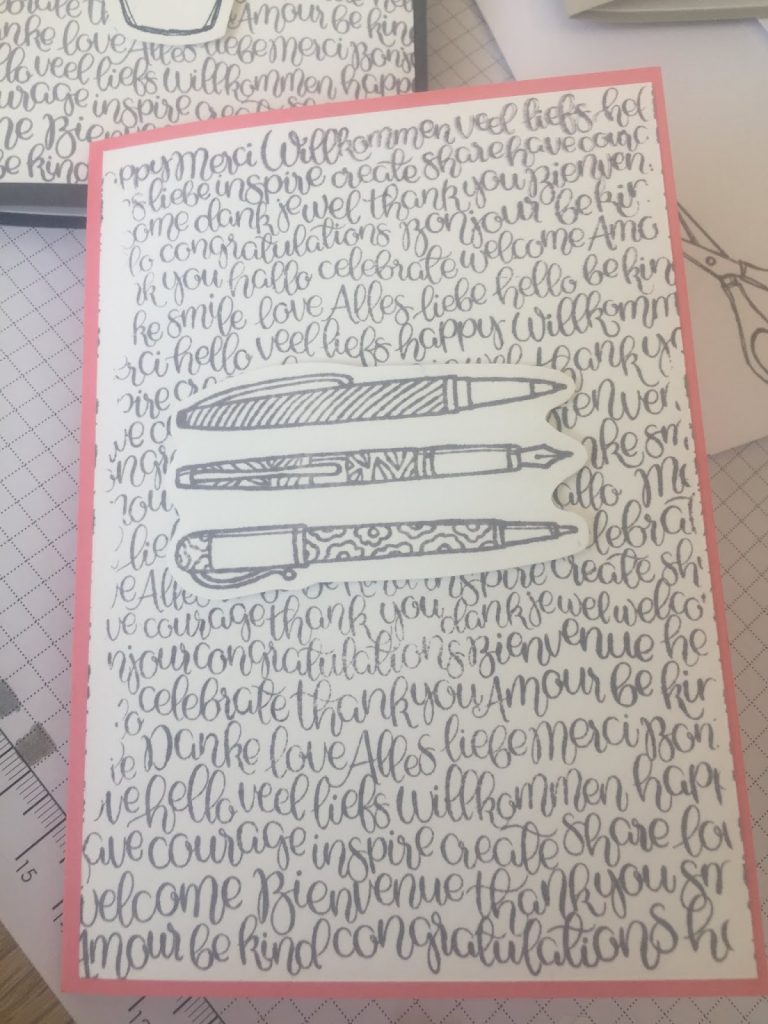 anke love Alles liebe Merci Bons
llo veel liefs Willkommen happ
ourage inspire create s
me Bienven
be kind
ppy Merci Willkommen veel liefs hel
s liebe inspire create share have courc
ome dank je wel thank you Bienven
lo congratulations Bonjour be kin
k you hallo celebrate welcome Amo
ke smile love Alles liebe hello be kin
rci hello veel liefs happy Willkomm
ire crea je wel thank yo
ve c Bienven
ngr nke sm
you allo Me
lie lebrat
e Alles be kind inspire create sh
ve courage thank you dank je wel welco
njour congratulations Bienvenue he
celebrate thank you Amour be kin
ie Danke love Alles liebe Merci Bon
ve hello veel liefs Willkommen happ
ave courage inspire create share lov
velcome Bienvenue thank you sm
Amour be kind congratulations he
15
12